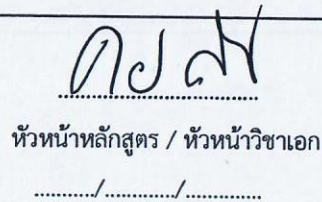 หัวหน้าหลักสูตร / หัวหน้าวิชาเอก
............/............/.............